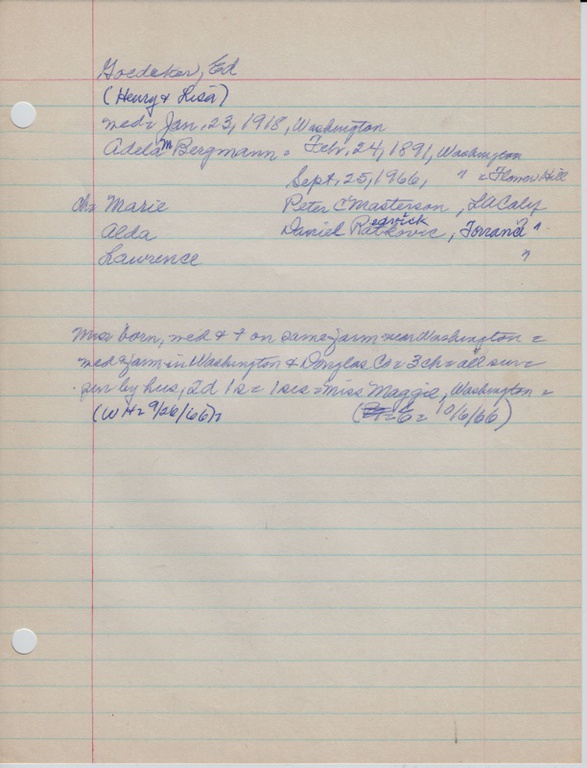 Goedeker, Ed
(Henry & Lisa)
med= Jan. 23, 1918, Washington
Adela M Bergmann = Feb. 24, 1891, Washington
Sept. 25, 1966, " = Flower Hill
chx Marie Peter C Masterson, LA Calif
Alda Daniel Radovick, Torrance "
Lawrence "
Mrs= born, med & + on same farm near Washington =
med & farm in Washington & Douglas Co = 3 ch = all sur=
sur by hus, 2d 1s = 1 sis = miss Maggie, Washington =
(WH= 9/26/66)= 10/6/66)